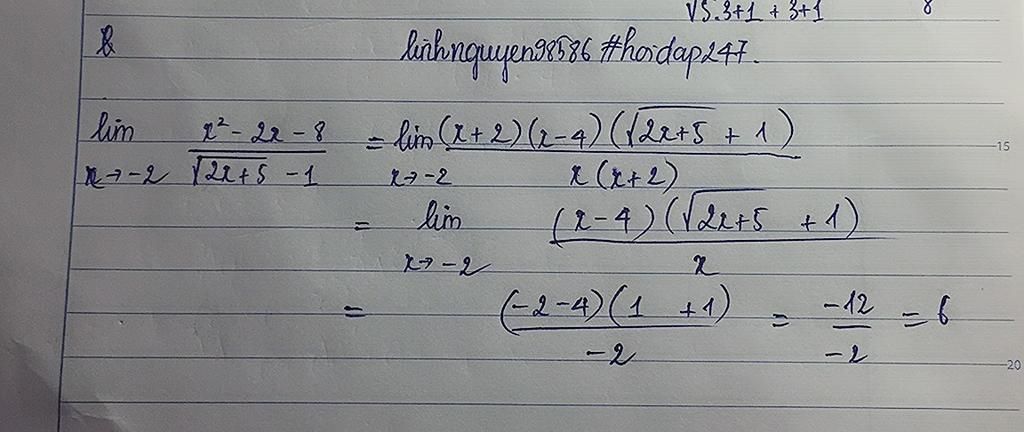 √5.3+1 + 3+1 8
linhnguyen98586 #hoidap247.
lim x→-2 (x² - 2x - 8)/(√(2x+5) - 1) = lim x→-2 (x+2)(x-4)(√(2x+5) + 1)/(x(x+2))
= lim x→-2 (x-4)(√(2x+5) + 1)/x
= (-2-4)(1 +1)/-2 = -12/-2 = 6
15
20